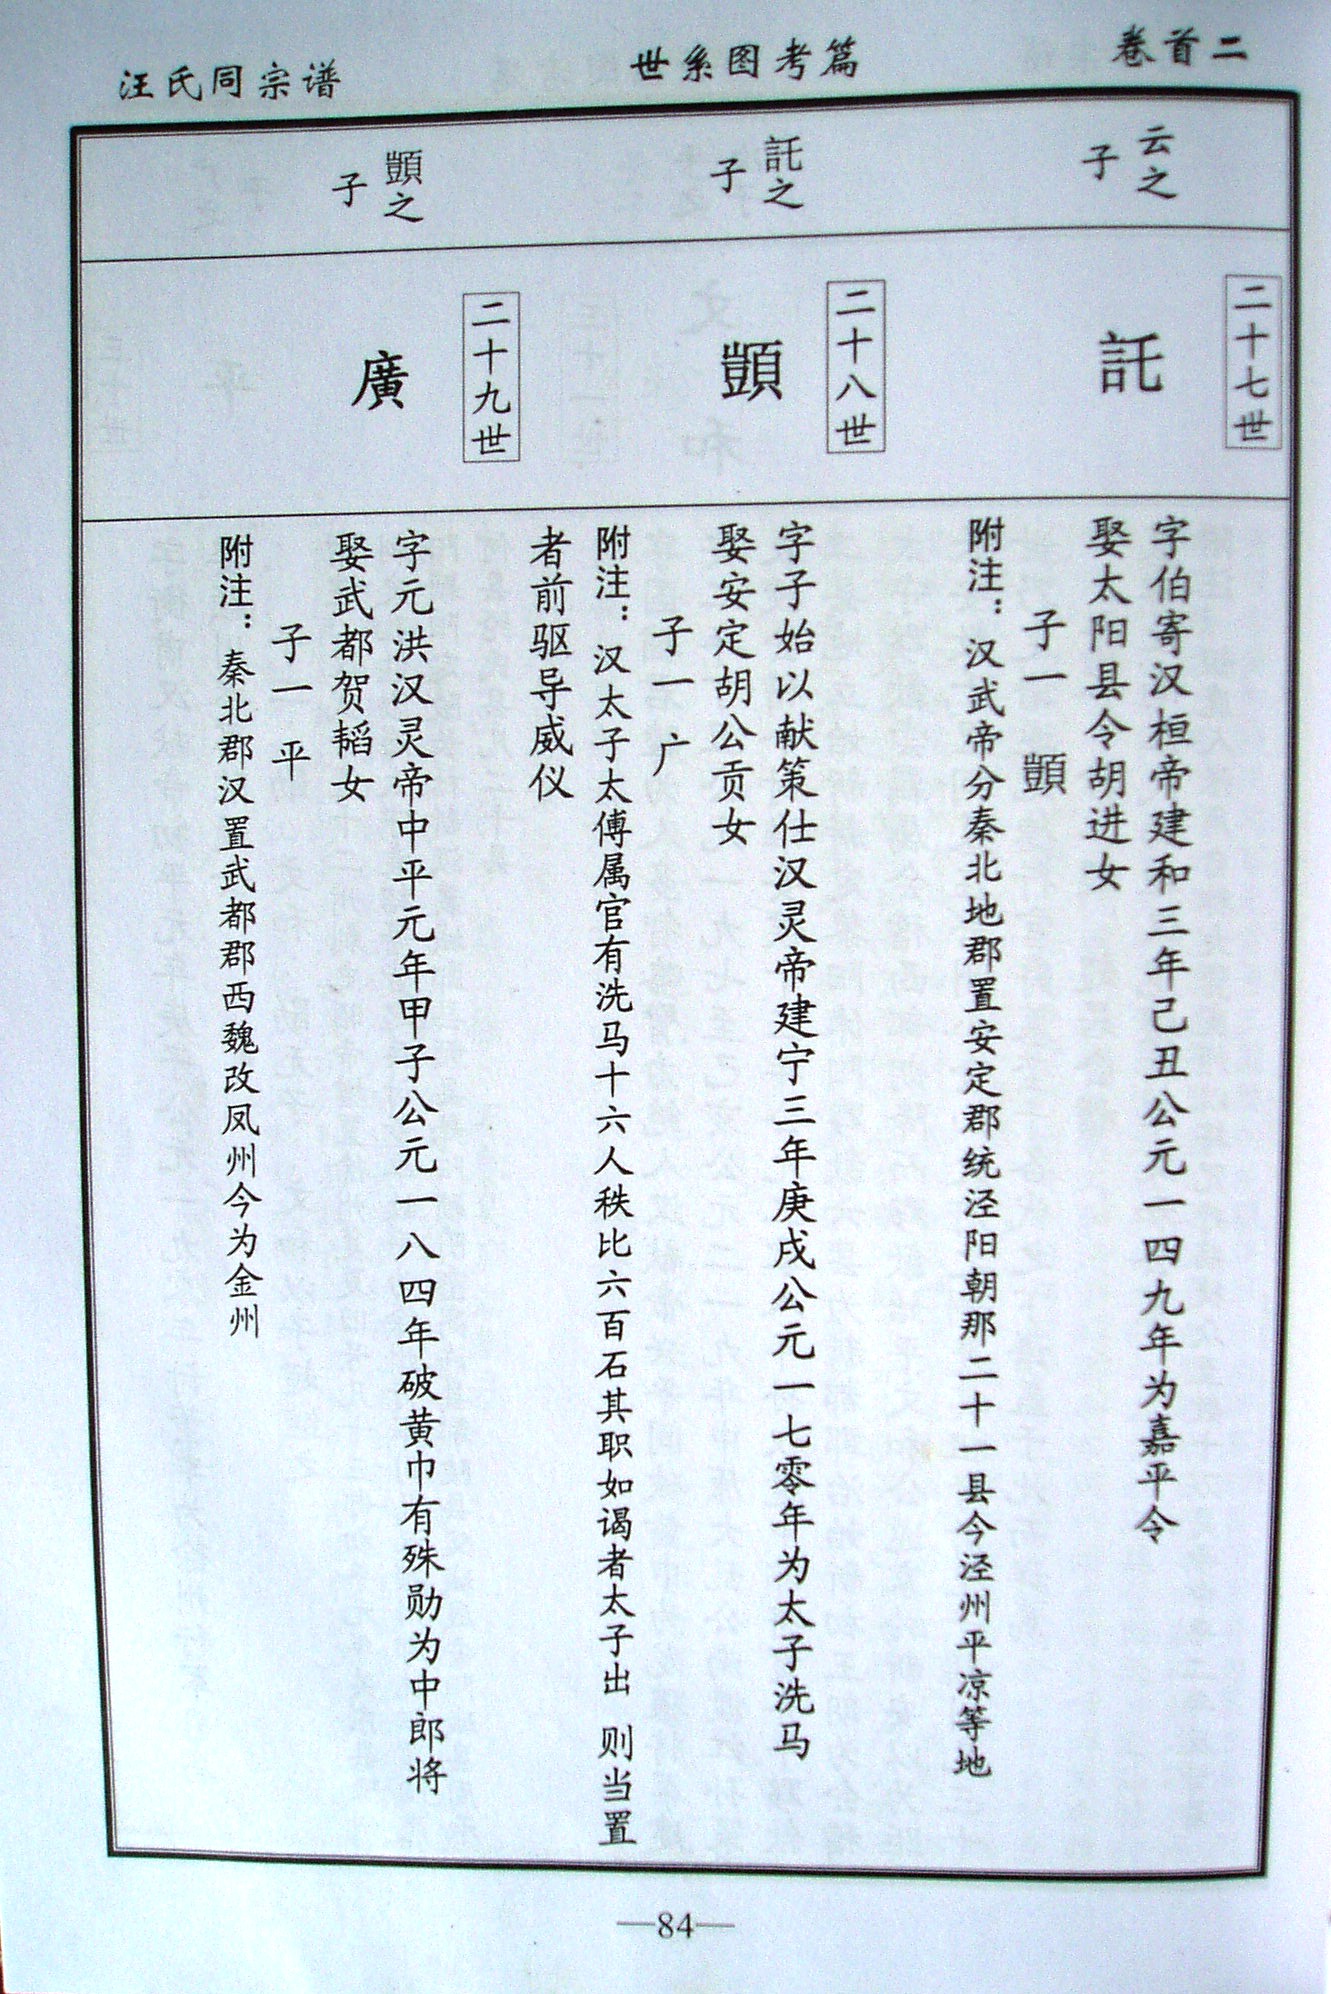 汪氏同宗谱
世系图考篇
卷首二
云之
子
二十七世
託
字伯寄汉桓帝建和三年己丑公元一四九年为嘉平令
娶太阳县令胡进女
子一 顗
附注：汉武帝分秦北地郡置安定郡统泾阳朝那二十一县今泾州平凉等地
託之
子
二十八世
顗
字子始以献策仕汉灵帝建宁三年庚戌公元一七零年为太子洗马
娶安定胡公贡女
子一 广
附注：汉太子太傅属官有洗马十六人秩比六百石其职如谒者太子出 则当置
者前驱导威仪
顗之
子
二十九世
廣
字元洪汉灵帝中平元年甲子公元一八四年破黄巾有殊勋为中郎将
娶武都贺韬女
子一 平
附注：秦北郡汉置武都郡西魏改凤州今为金州
—84—